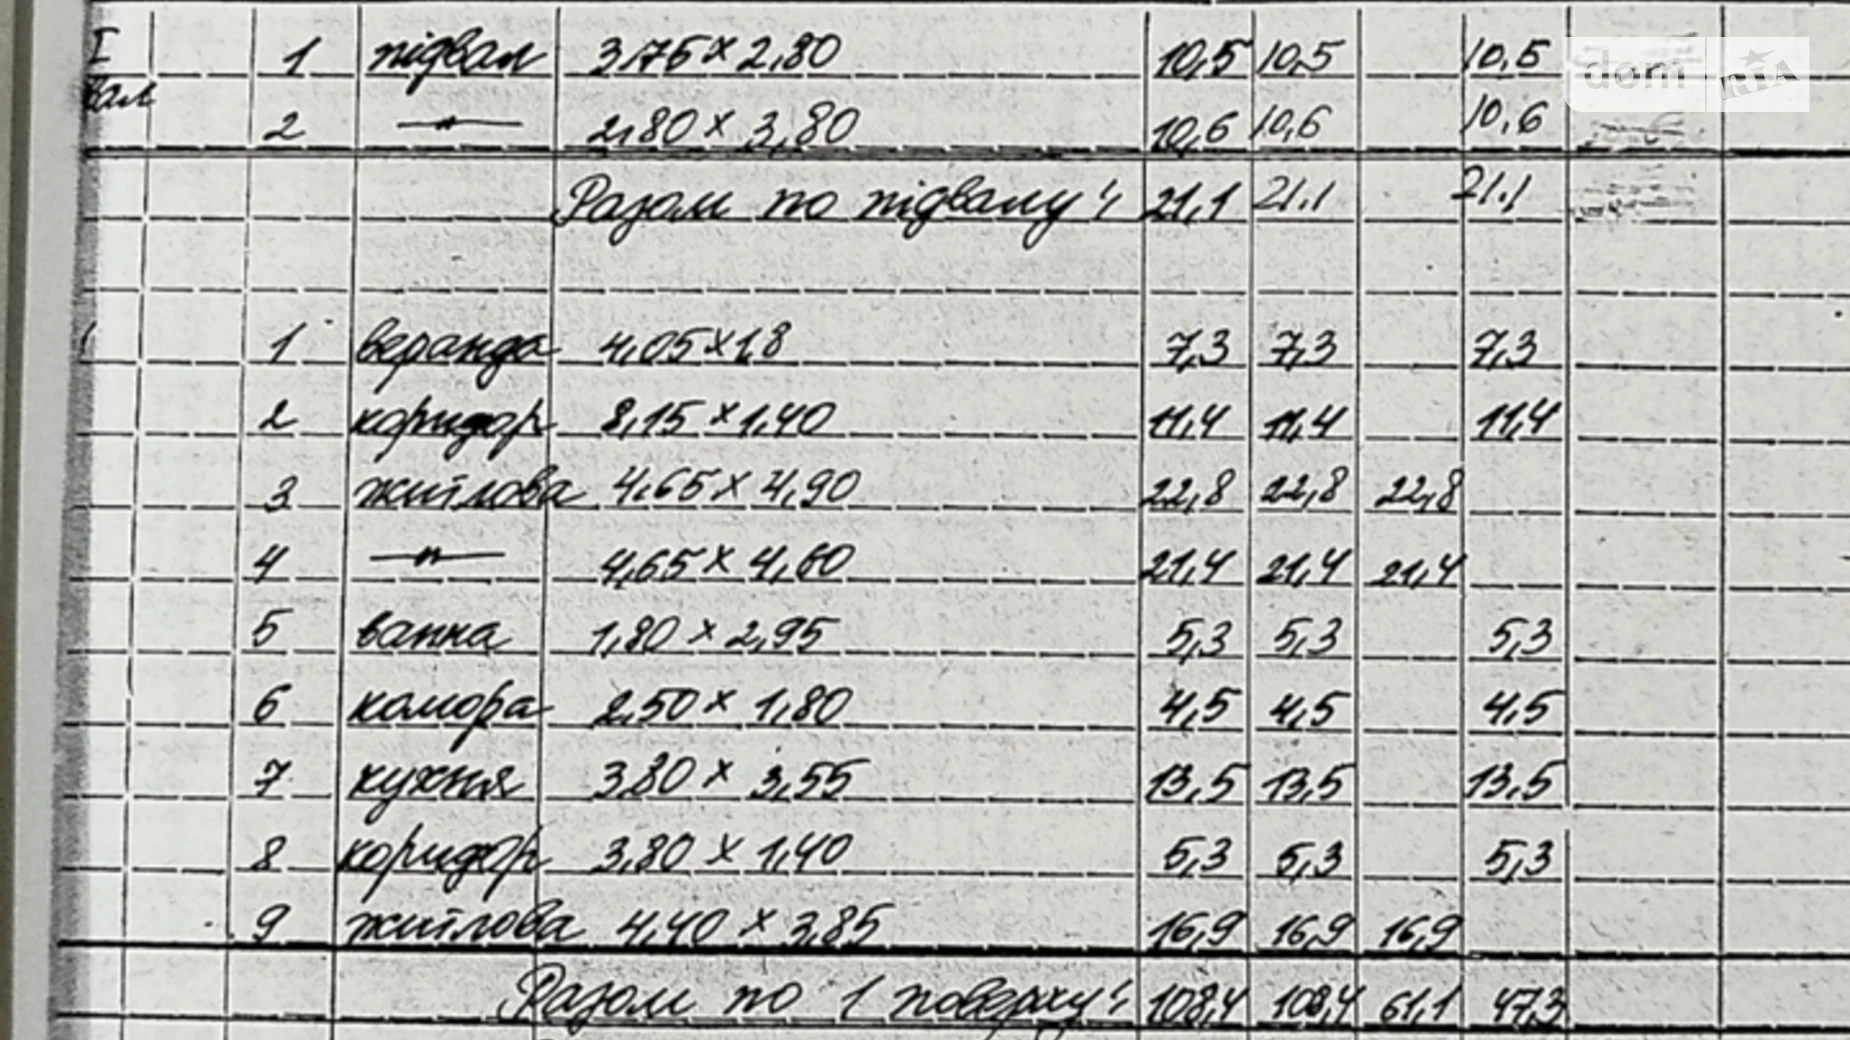 I 1 підвал 3.75 × 2,80 10,5 10,5 10,5
вал
2 —"— 2,80 × 3,80 10,6 10,6 10,6
Разом по підвалу: 21,1 21.1 21.1
1 веранда 4,05 × 1,8 7,3 7,3 7,3
2 коридор 8,15 × 1,40 11,4 11,4 11,4
3 житлова 4,65 × 4,90 22,8 22,8 22,8
4 —"— 4,65 × 4,60 21,4 21,4 21,4
5 ванна 1,80 × 2,95 5,3 5,3 5,3
6 комора 2,50 × 1,80 4,5 4,5 4,5
7 кухня 3,80 × 3,55 13,5 13,5 13,5
8 коридор 3,80 × 1,40 5,3 5,3 5,3
9 житлова 4,40 × 3,85 16,9 16,9 16,9
Разом по 1 поверху: 108,4 108,4 61,1 47,3
dom RIA